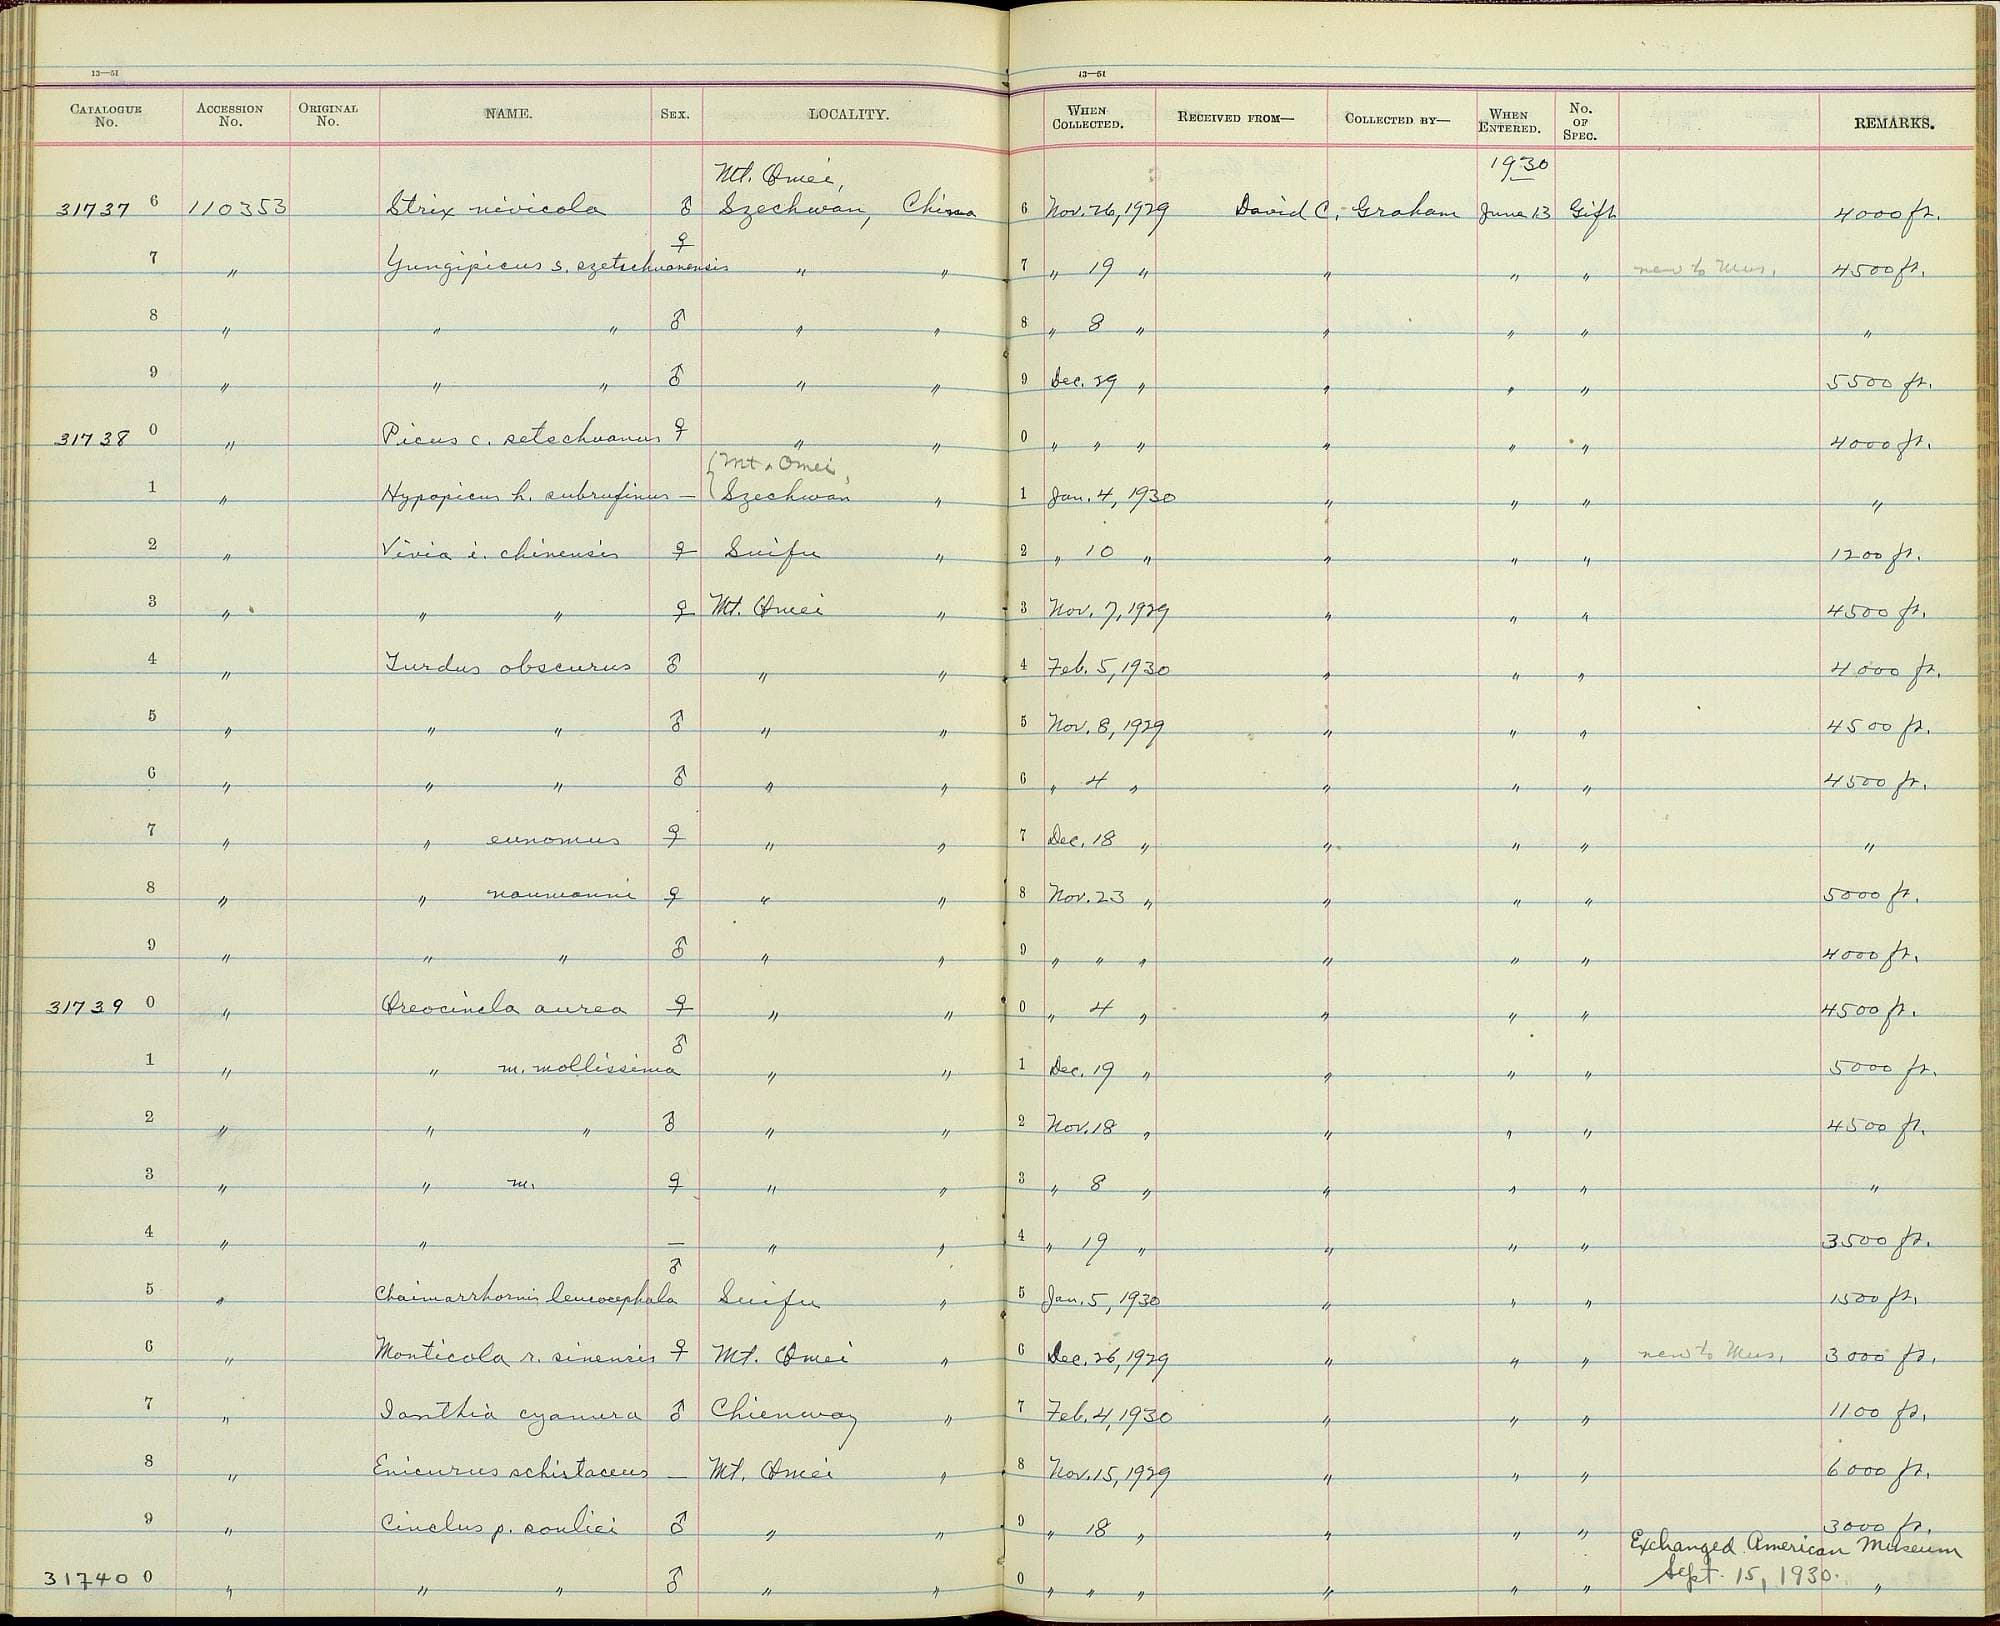 13—51
13—51
CATALOGUE No. ACCESSION No. ORIGINAL No. NAME. SEX. LOCALITY. WHEN COLLECTED. RECEIVED FROM— COLLECTED BY— WHEN ENTERED. No. OF SPEC. REMARKS.
Mt. Omei, 1930
31737 6 110353 Strix nivicola ♂ Szechwan, China 6 Nov. 26, 1929 David C. Graham June 13 Gift 4000 ft.
7 " Yungipicus s. szetschuanensis ♀ " " 7 " 19 " " " " new to Mus. 4500 ft.
8 " " " ♂ " " 8 " 8 " " " " "
9 " " " ♂ " " 9 Dec. 29 " " " " 5500 ft.
31738 0 " Picus c. setschuanus ♀ " " 0 " " " " " " 4000 ft.
{Mt. Omei,
1 " Hypopicus h. subrufinus — Szechwan " 1 Jan. 4, 1930 " " " "
2 " Vivia i. chinensis ♀ Suifu " 2 " 10 " " " " 1200 ft.
3 " " " ♀ Mt. Omei " 3 Nov. 7, 1929 " " " 4500 ft.
4 " Turdus obscurus ♂ " " 4 Feb. 5, 1930 " " " 4000 ft.
5 " " " ♂ " " 5 Nov. 8, 1929 " " " 4500 ft.
6 " " " ♂ " " 6 " 4 " " " " 4500 ft.
7 " " eunomus ♀ " " 7 Dec. 18 " " " " "
8 " " naumanni ♀ " " 8 Nov. 23 " " " " 5000 ft.
9 " " " ♂ " " 9 " " " " " " 4000 ft.
31739 0 " Oreocincla aurea ♀ " " 0 " 4 " " " " 4500 ft.
1 " " m. mollissima ♂ " " 1 Dec. 19 " " " " 5000 ft.
2 " " " ♂ " " 2 Nov. 18 " " " " 4500 ft.
3 " " m. ♀ " " 3 " 8 " " " " "
4 " " — " " 4 " 19 " " " " 3500 ft.
5 " Chaimarrhornis leucocephala ♂ Suifu " 5 Jan. 5, 1930 " " " 1500 ft.
6 " Monticola r. sinensis ♀ Mt. Omei " 6 Dec. 26, 1929 " " " new to Mus. 3000 ft.
7 " Ianthia cyanura ♂ Chienway " 7 Feb. 4, 1930 " " " 1100 ft.
8 " Enicurus schistaceus — Mt. Omei " 8 Nov. 15, 1929 " " " 6000 ft.
9 " Cinclus p. souliei ♂ " " 9 " 18 " " " " 3000 ft.
Exchanged American Museum
31740 0 " " " ♂ " " 0 " " " " " " Sept. 15, 1930. "